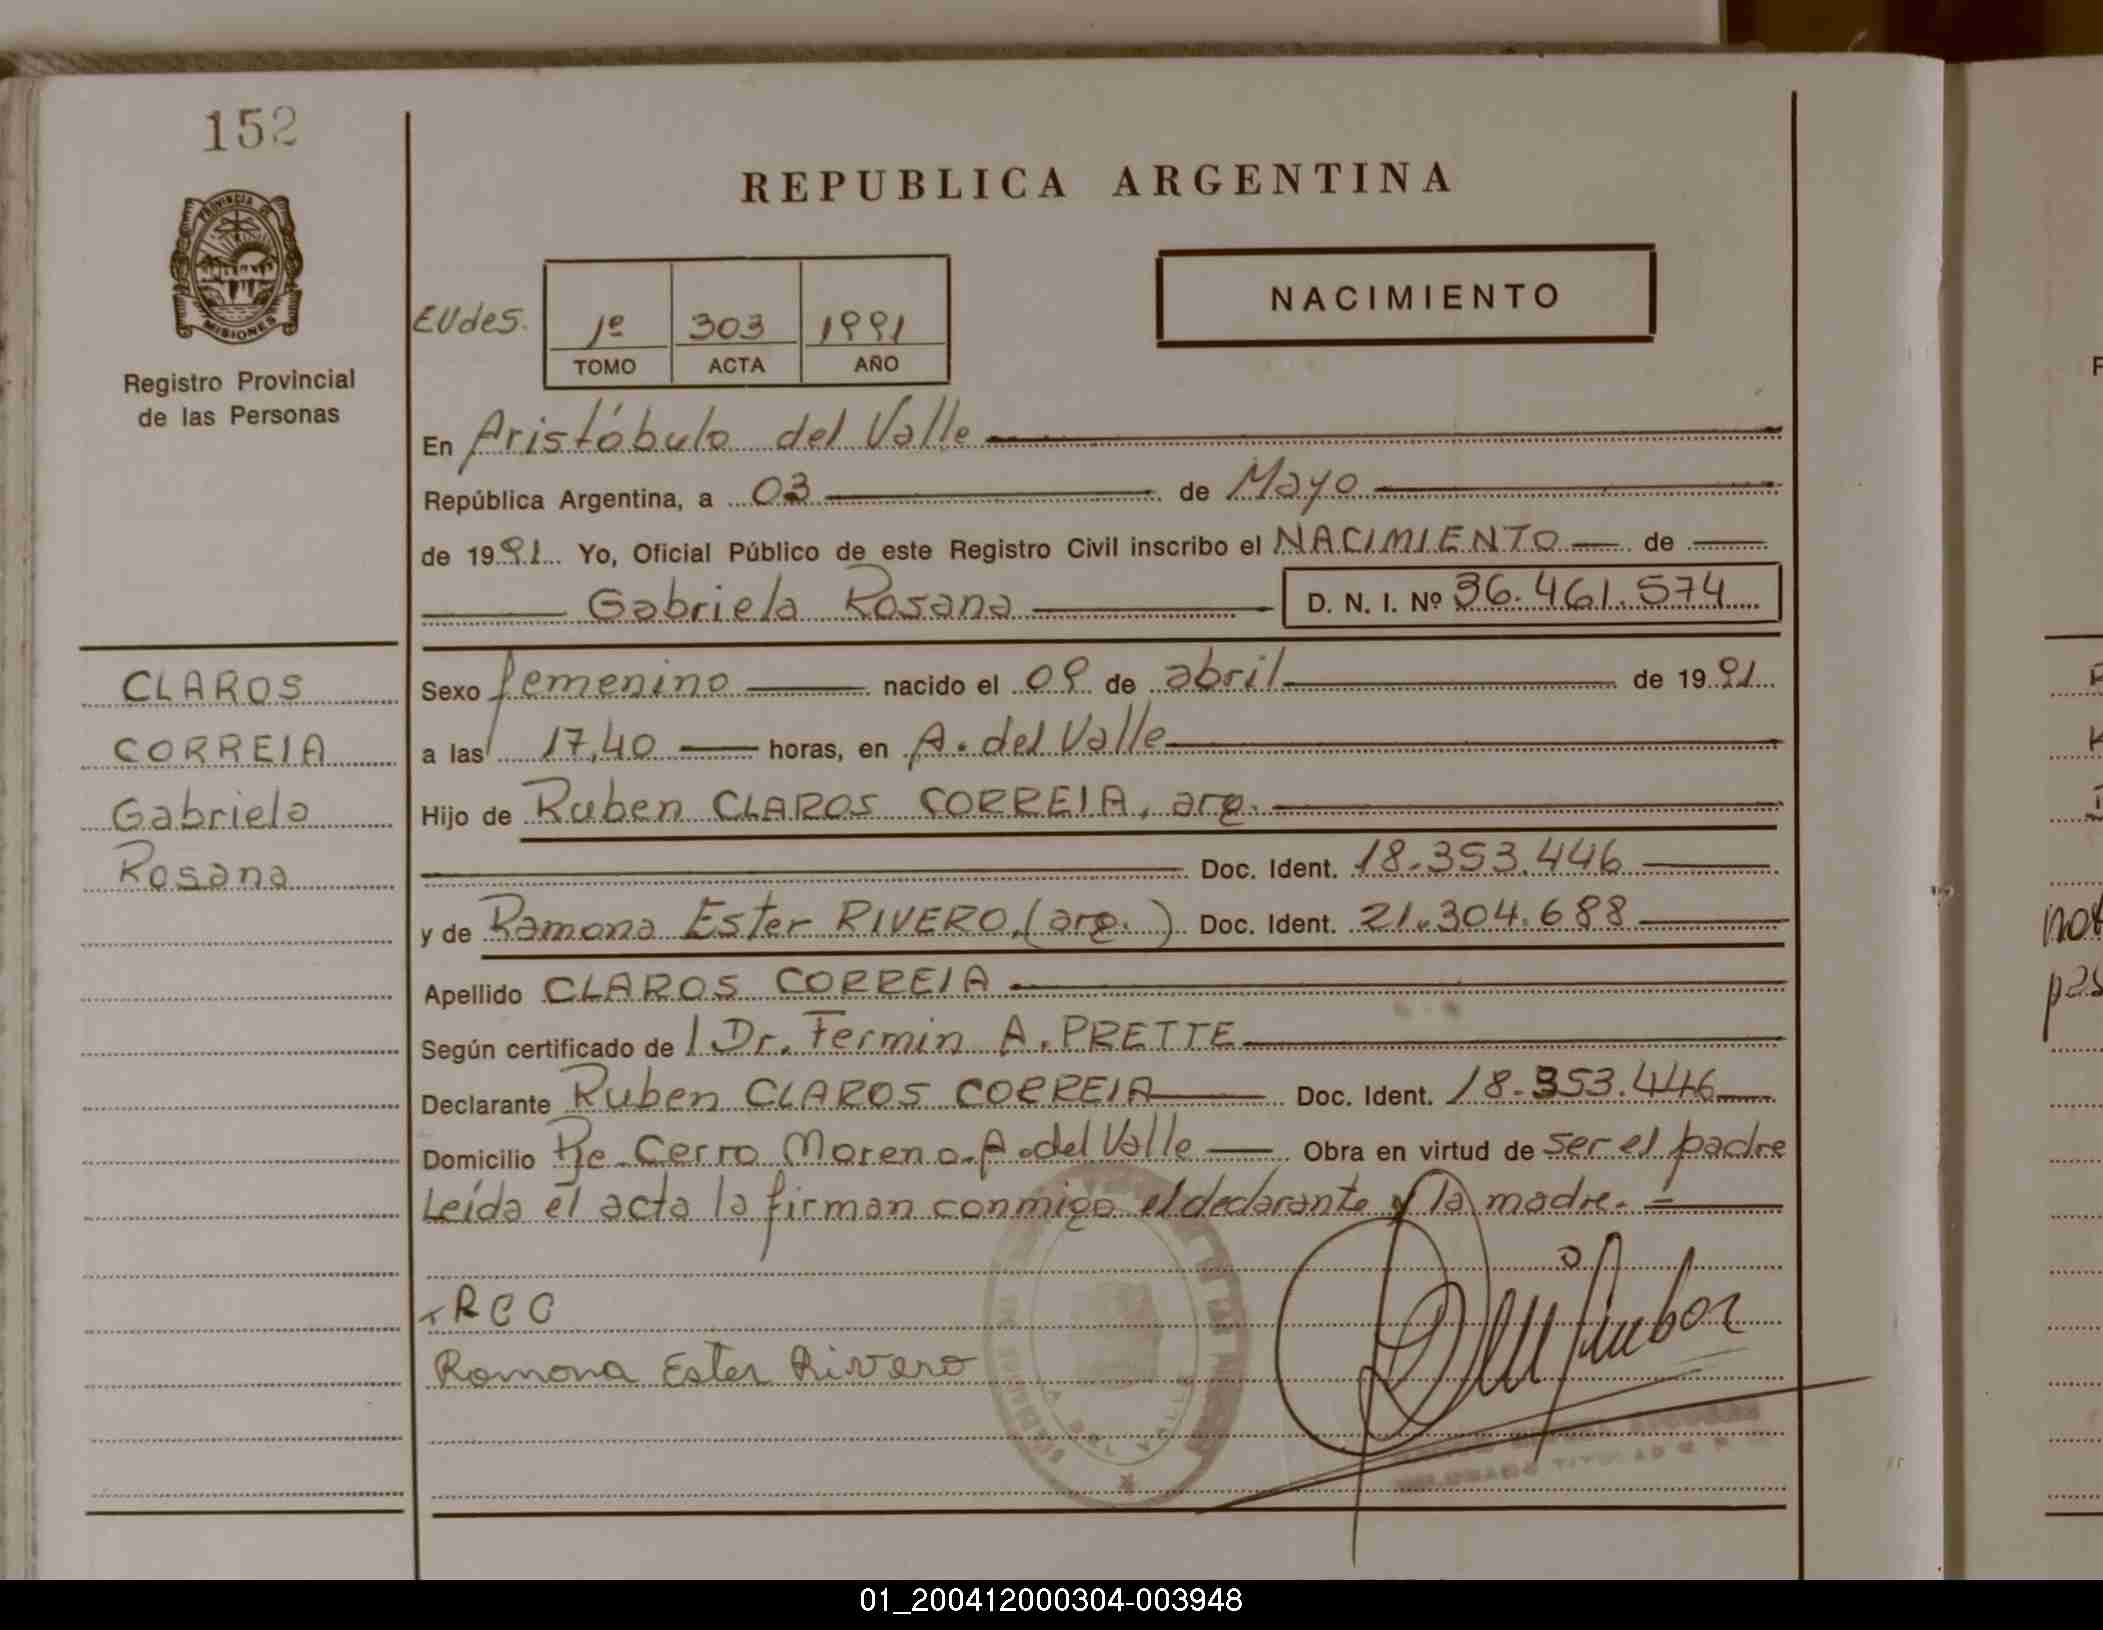 152
REPUBLICA ARGENTINA
PROVINCIA DE
MISIONES
Registro Provincial
de las Personas
EUdes.
1º 303 1991
TOMO ACTA AÑO
NACIMIENTO
En Aristóbulo del Valle
República Argentina, a 03 de Mayo
de 1991 Yo, Oficial Público de este Registro Civil inscribo el NACIMIENTO de
Gabriela Rosana D. N. I. Nº 36.461.574
CLAROS
CORREIA
Gabriela
Rosana
Sexo femenino nacido el 09 de abril de 1991
a las 17,40 horas, en A. del Valle
Hijo de Ruben CLAROS CORREIA, arg.
Doc. Ident. 18.353.446
y de Ramona Ester RIVERO, (arg.) Doc. Ident. 21.304.688
Apellido CLAROS CORREIA
Según certificado de l Dr. Fermin A. PRETTE
Declarante Ruben CLAROS CORREIA Doc. Ident. 18.353.446
Domicilio Pje. Cerro Moreno. A. del Valle Obra en virtud de ser el padre
Leída el acta la firman conmigo el declarante y la madre.=
RCC
Ramona Ester Rivero
not
pas
01_200412000304-003948